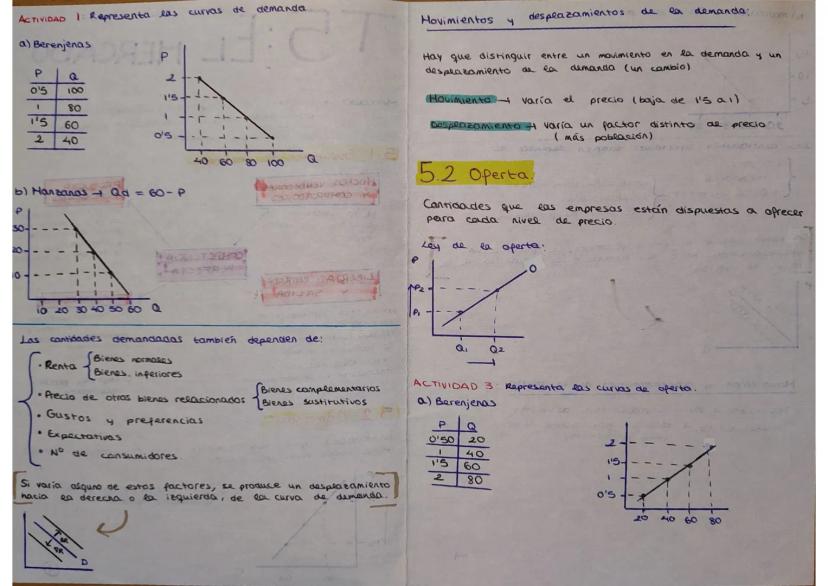 ACTIVIDAD 1: Representa las curvas de demanda
a) Berenjenas
P Q
0'5 100
1 80
1'5 60
2 40
P
2
1'5
1
0'5
40 60 80 100 Q
b) Manzanas → Qd = 60 - P
P
30
20
10
10 20 30 40 50 60 Q
Las cantidades demandadas también dependen de:
• Renta { Bienes normales
Bienes inferiores
• Precio de otros bienes relacionados { Bienes complementarios
Bienes sustitutivos
• Gustos y preferencias
• Expectativas
• Nº de consumidores.
Si varía alguno de estos factores, se produce un desplazamiento
hacia la derecha o la izquierda, de la curva de demanda.
D
Movimientos y desplazamientos de la demanda:
Hay que distinguir entre un movimiento en la demanda y un
desplazamiento de la demanda (un cambio)
Movimiento → varía el precio (baja de 1'5 a 1)
Desplazamiento → varía un factor distinto al precio
(más población)
5.2 Oferta.
Cantidades que las empresas están dispuestas a ofrecer
para cada nivel de precio.
Ley de la oferta:
P
O
P2
P1
Q1 Q2
ACTIVIDAD 3: Representa las curvas de oferta.
a) Berenjenas
P Q
0'50 20
1 40
1'5 60
2 80
2
1'5
1
0'5
20 40 60 80